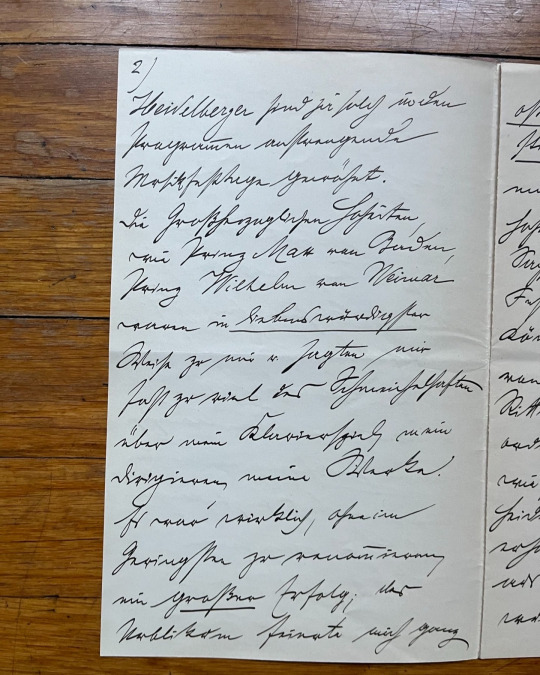 2)
Heidelberger sind ja solch in den
Programmen anstrengende
Musikfesttage gewöhnt.
Die Großherzoglichen Hoheiten,
wie Prinz Max von Baden,
Prinz Wilhelm von Weimar
waren in liebenswürdigster
Weise zu mir u. sagten mir
fast zu viel des Schmeichelhaften
über mein Klavierspiel, mein
dirigieren, meine Werke.
Es war wirklich, ohne im
Geringsten zu renommieren,
ein großer Erfolg; das
Publikum feierte mich ganz